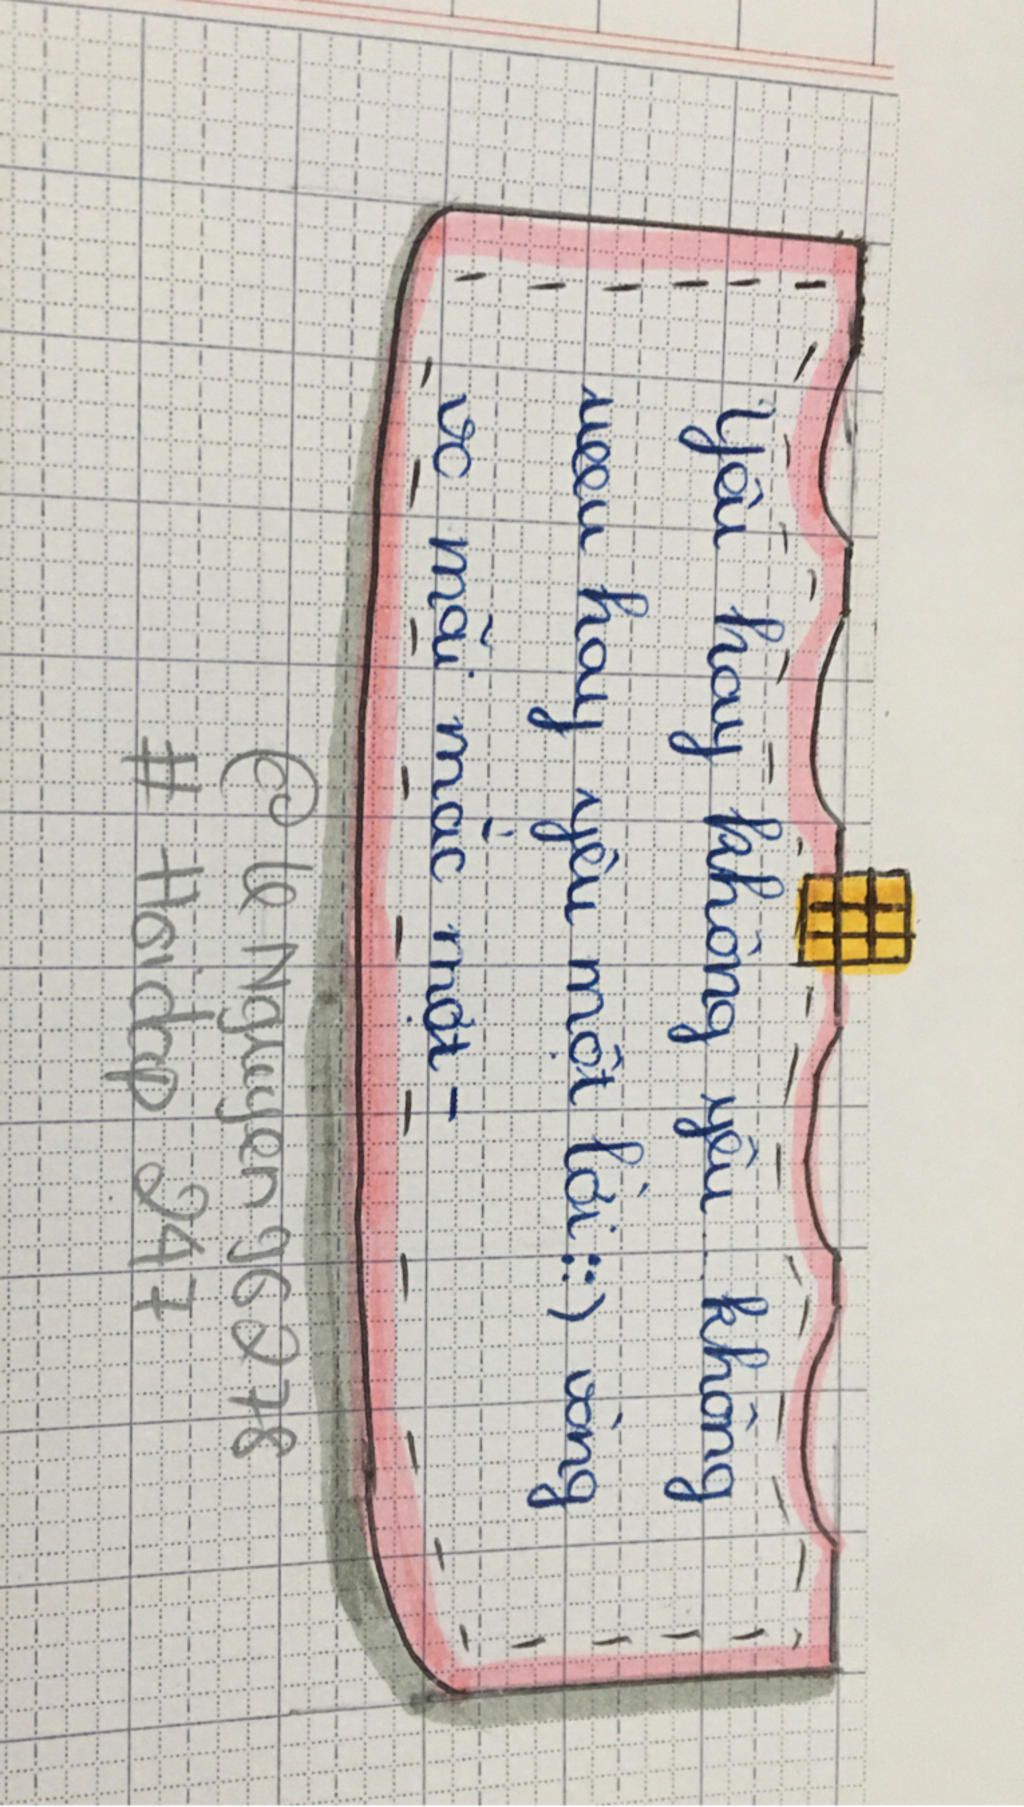 Yêu hay không yêu không
iêu hay yêu một lời :) vòng
vo mãi mắc mớt -
© lê Nguyen g6278
# Hoidap 247